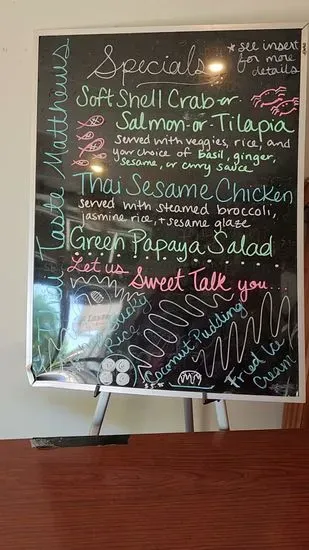 Specials
* see insert
for more
details
Soft Shell Crab -or-
Salmon -or- Tilapia
served with veggies, rice, and
your choice of basil, ginger,
sesame, or curry sauce
Thai Sesame Chicken
served with steamed broccoli,
jasmine rice, + sesame glaze
Green Papaya Salad
Let us Sweet Talk you...
Rice
Coconut Pudding
Fried Ice
Cream
Thai Taste Matthews